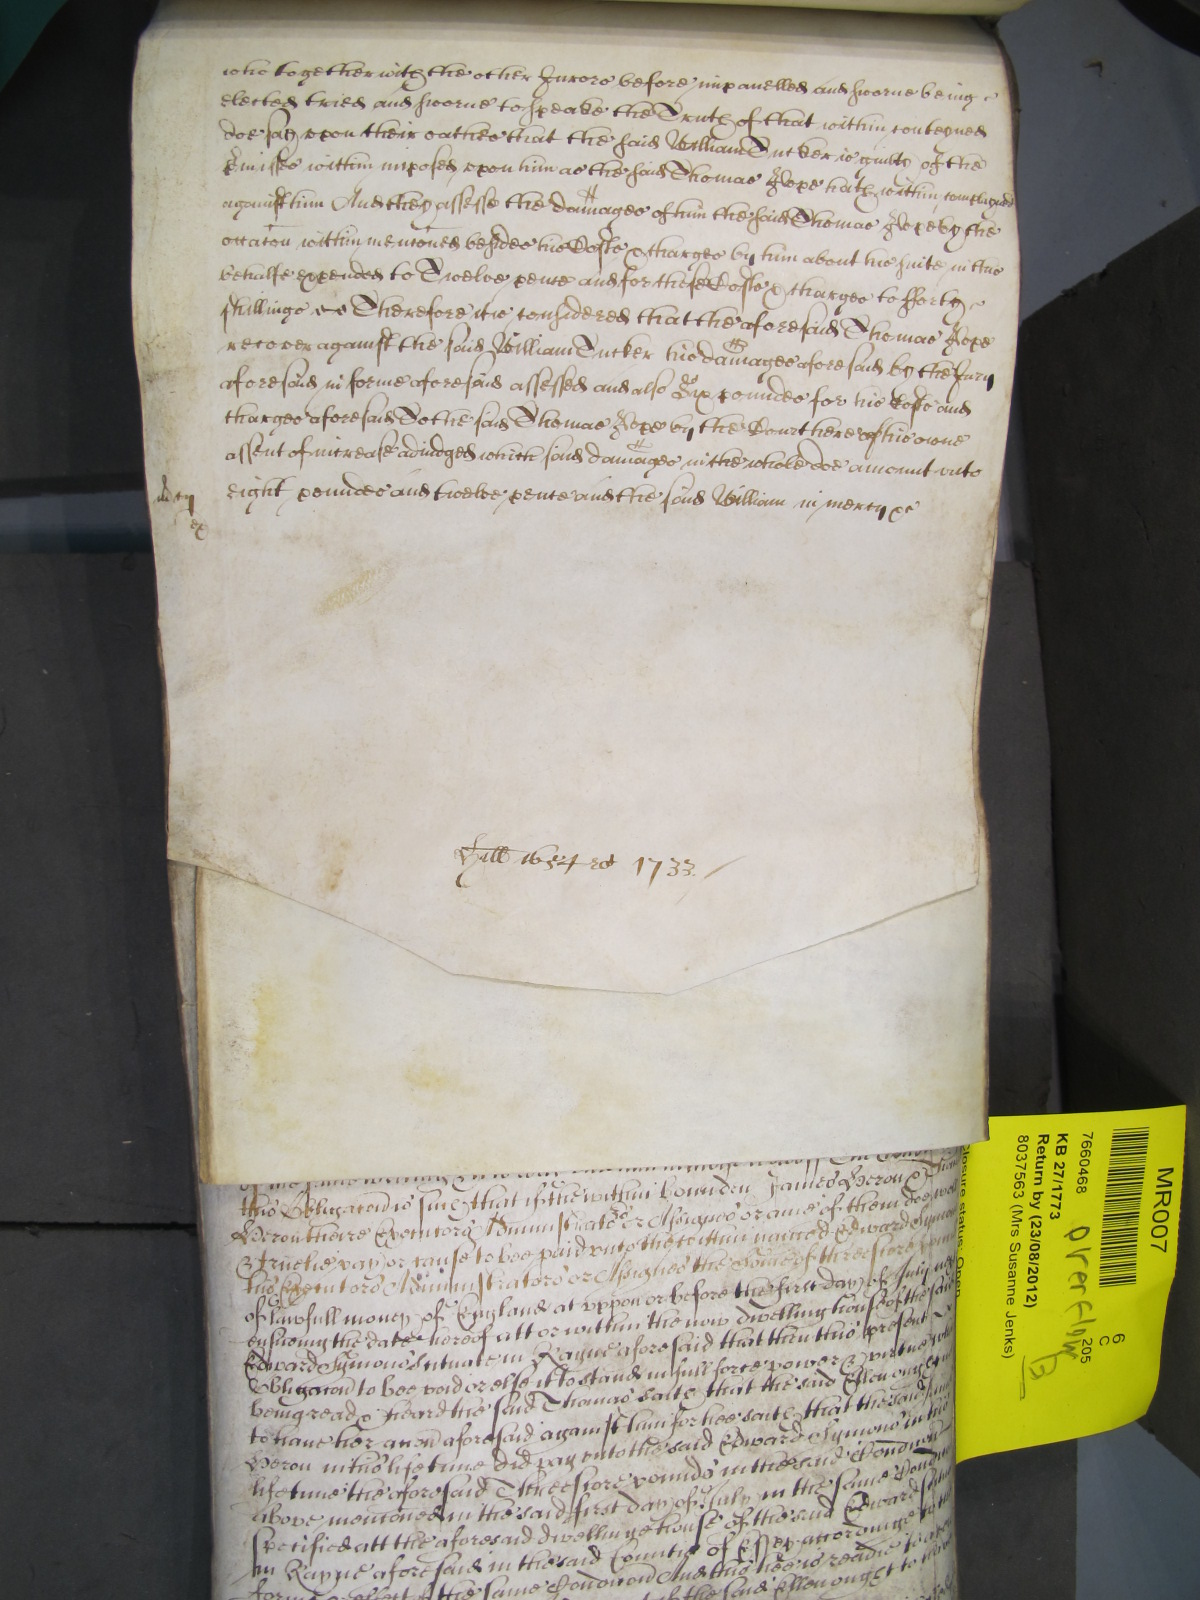 who together with the other Jurors before impanelled and sworne being
elected tried and sworne to speake the Truth of that within conteyned
doe say upon their oathes that the said William Tucker is guilty of the
within imposed upon him as the said Thomas Pope hath within complayned
against him And they assesse the damages of him the said Thomas Pope by the
occasion within menconed besides his Costs & charges by him about his suite in this
behalfe expended to Twelve pence and for those Costs & charges to fforty
shillings Therefore it is considered that the aforesaid Thomas Pope
recover against the said William Tucker his damages aforesaid by the Jury
aforesaid in forme aforesaid assessed and also Six poundes for his Costs and
charges aforesaid To the said Thomas Pope by the Court here of his owne
assent of increase adiudged which said damages in the whole doe amount unto
eight poundes and twelve pence and the said William in mercy &c
Hill 1654 rot 1733
this Obligacon is such that if the within bounden James Heron
Heron theire Executors Administrators or Assignes or anie of them doe well
& truelie pay or cause to bee paid unto the within named Edward Symons
his Executors Administrators or Assignes the Some of threescore
of lawfull money of England at uppon or before the first day of July
ensueing the date hereof att or within the now dwelling house of the said
Edward Symons scituate in Rayne aforesaid that then this present
Obligacon to bee void or else it to stand in full force power & virtue
being read & heard the said Thomas saith that the said Ellen ought not
to have her accon aforesaid against him for hee saith that the said James
Heron in his life time did pay unto the said Edward Symons in his
life time the aforesaid Threescore pounds in the said Condicon
above menconed in the said first day of July in the same Condicon
specified att the aforesaid dwellinge house of the said Edward
in Rayne aforesaid in the said County of Essex accordinge to the
forme & effect of the same Condicon And this hee is readie to
the said Ellen ought to
MR007
7660468
KB 27/1773
Return by (23/08/2012)
8037563 (Mrs Susanne Jenks)
6
C
205
Closure status: Open
overflow